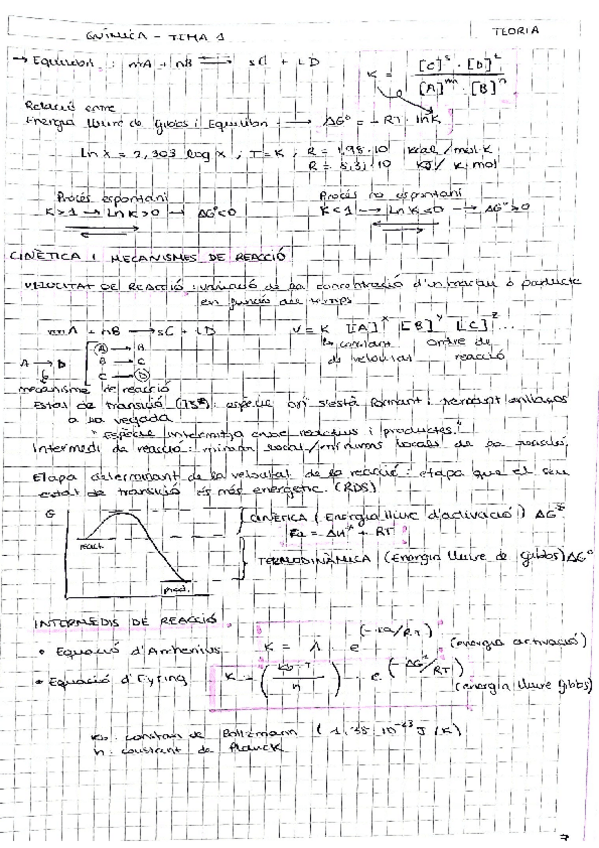 QUÍMICA - TEMA 1
TEORIA
→ Equilibri : mA + nB ⇌ sC + tD
K = [C]^s · [D]^t / [A]^m · [B]^n
Relació entre
Energia lliure de Gibbs i Equilibri → ΔG° = -RT · lnK
Ln x = 2,303 log x ; T = K ; R = 1,98·10 kcal/mol·K
R = 8,31·10 KJ/K·mol
Procés espontani
Procés no espontani
K>1 → Ln K>0 → ΔG°<0
K<1 → Ln K≤0 → ΔG°≥0
CINÈTICA I MECANISMES DE REACCIÓ
VELOCITAT DE REACCIÓ : variació de la concentració d'un reactiu o producte
en funció del temps
mA + nB → sC + tD
v = K [A]^x [B]^y [C]^z...
constant
ordre de
de velocitat
reacció
A → D
A → B
B → C
C → D
mecanisme de reacció
Estat de transició (TS‡) : espècie on s'està formant i trencant enllaços
a la vegada
"Espècie intermitja entre reactius i productes."
Intermedi de reacció : mínim local/mínims locals de la
Etapa determinant de la velocitat de la reacció : etapa que el seu
estat de transició és més energètic. (RDS)
G
CINÈTICA (Energia lliure d'activació) ΔG‡
Ea = ΔH‡ + RT
react.
TERMODINÀMICA (Energia lliure de Gibbs) ΔG°
prod.
INTERMEDIS DE REACCIÓ
• Equació d'Arrhenius K = A · e^(-Ea/RT) (energia activació)
• Equació d'Eyring K = (Kb·T/h) · e^(-ΔG‡/RT)
(energia lliure Gibbs)
Kb: constan de Boltzmann (1.38·10^-23 J/K)
h: constant de Planck